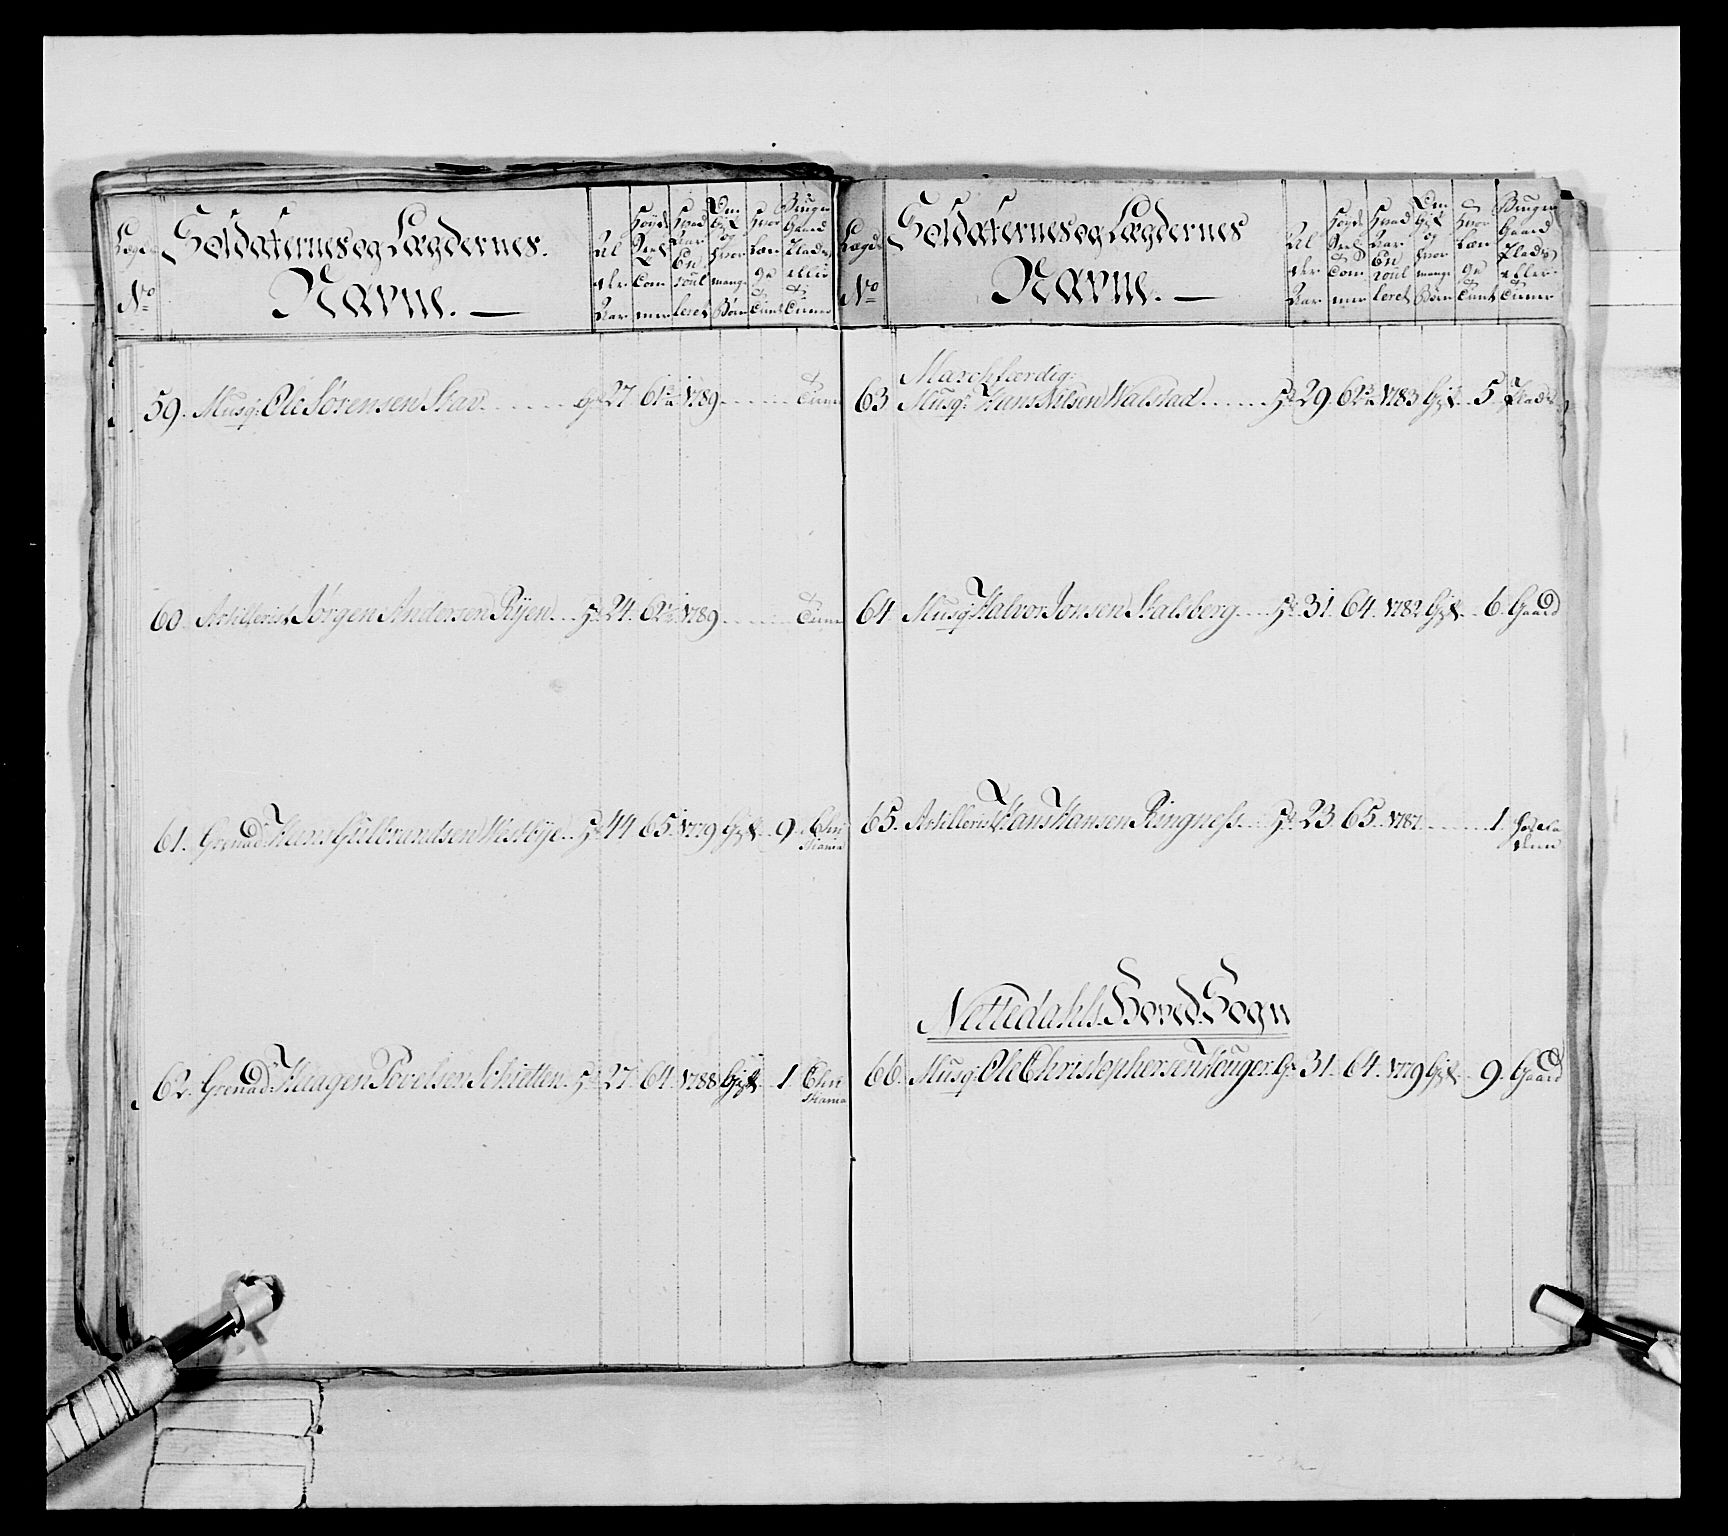 Lægd No
Soldaternes og Lægdernes
Navne.
Al der Aar
Høyde Sec Tom mer
Hvad Aar En roul leret
Om Gift og Hvor mange Børn
Hvor læn ge tient
Bruger Gaard Plads eller tiener
59. Musq: Ole Sørensen Skav 27 61½ 1789 tiener
60. Artillerist Jørgen Andersen Ryen 24 62½ 1789 tiener
61. Grenad: Hans Gulbrandsen Westbye 44 65 1779 Gift 9 Chri
stiania
62. Grenad: Haagen Povelsen Schietten 27 64 1788 Gift 1 Chri
stiania
Lægd No
Soldaternes og Lægdernes
Navne.
Al der Aar
Høyde Tom mer
Hvad Aar En roul leret
Om Gift og Hvor mange Børn
Hvor læn ge tient
Bruger Gaard Plads eller tiener
Marchfærdig:
63 Musq: Hans Nilsen Walstad 29 62¾ 1783 Gift 5 Plads
64 Musq: Halvor Jonsen Skalsberg 31 64 1782 Gift 6 Gaard
65. Artillerist Hans Hansen Ringness 23 65 1787 1
Nittedahls Hoved Sogn
66. Musq: Ole Christophersen Hauger 31 64 1779 Gift 9. Gaard